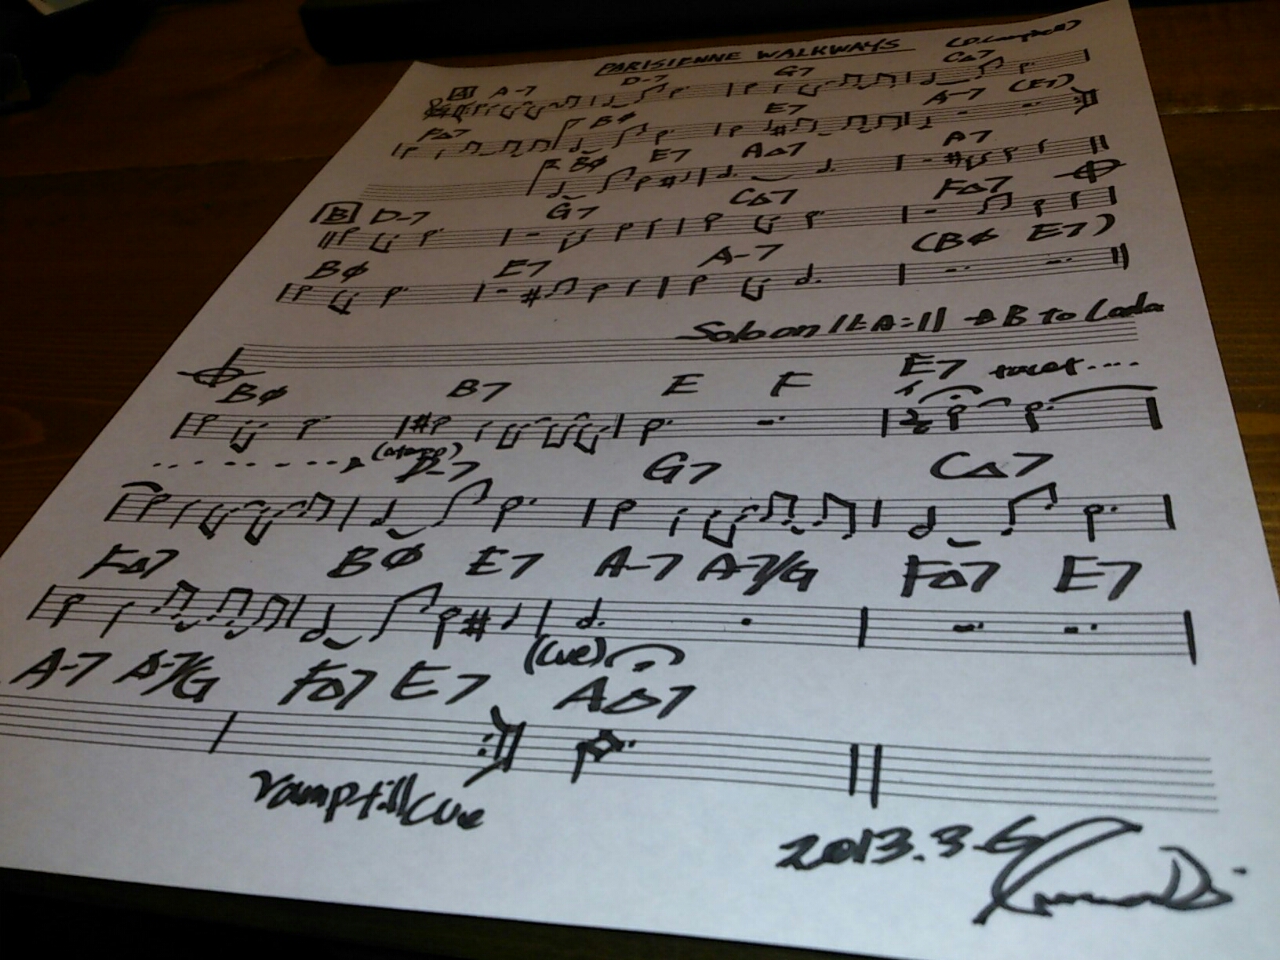 PARISIENNE WALKWAYS
A A-7 D-7 G7 C△7
F△7 Bø E7 A-7 (E7)
Bø E7 A△7 A7
B D-7 G7 C△7 F△7
Bø E7 A-7 (Bø E7)
Solo on
B to Coda
Bø B7 E F E7 tacet....
D-7 G7 C△7
F△7 Bø E7 A-7 A-7/G F△7 E7
(cue)
A-7 A-7/G F△7 E7 A△7
vamp till cue
2013.3.6